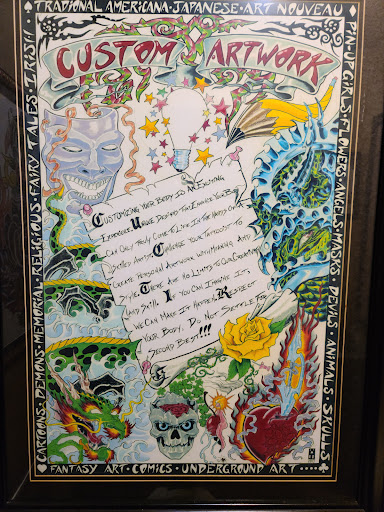 TRADIONAL AMERICANA · JAPANESE · ART NOUVEAU
CUSTOM ARTWORK
PIN-UP GIRLS · FLOWERS · ANGELS · MASKS · DEVILS · ANIMALS · SKULLS
CARTOONS · DEMONS · MEMORIAL · RELIGIOUS · FAIRY TALES · IRISH
CUSTOMIZING YOUR BODY IS AN EXCITING
EXPERIENCE UNIQUE DESIGNS THAT ENHANCE YOUR BODY
CAN ONLY TRULY COME TO LIFE IN THE HANDS OF A
SKILLED ARTIST. CHALLENGE YOUR TATTOOIST TO
CREATE PERSONAL ARTWORK WITH MEANING AND
STYLE. THERE ARE NO LIMITS TO OUR CREATIVITY
AND SKILL. IF YOU CAN IMAGINE IT,
WE CAN MAKE IT HAPPEN. RESPECT
YOUR BODY. DO NOT SETTLE FOR
SECOND BEST!!!
FANTASY ART · COMICS · UNDERGROUND ART